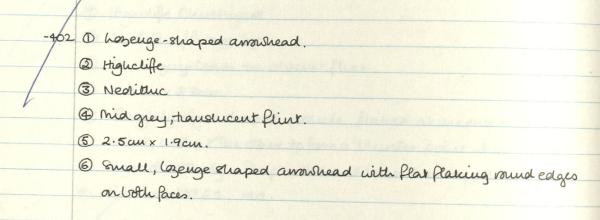 -402 ① Lozenge-shaped arrowhead.
② Highcliffe
③ Neolithic
④ Mid grey, translucent flint.
⑤ 2.5cm x 1.9cm.
⑥ Small, lozenge shaped arrowhead with flat flaking round edges
on both faces.